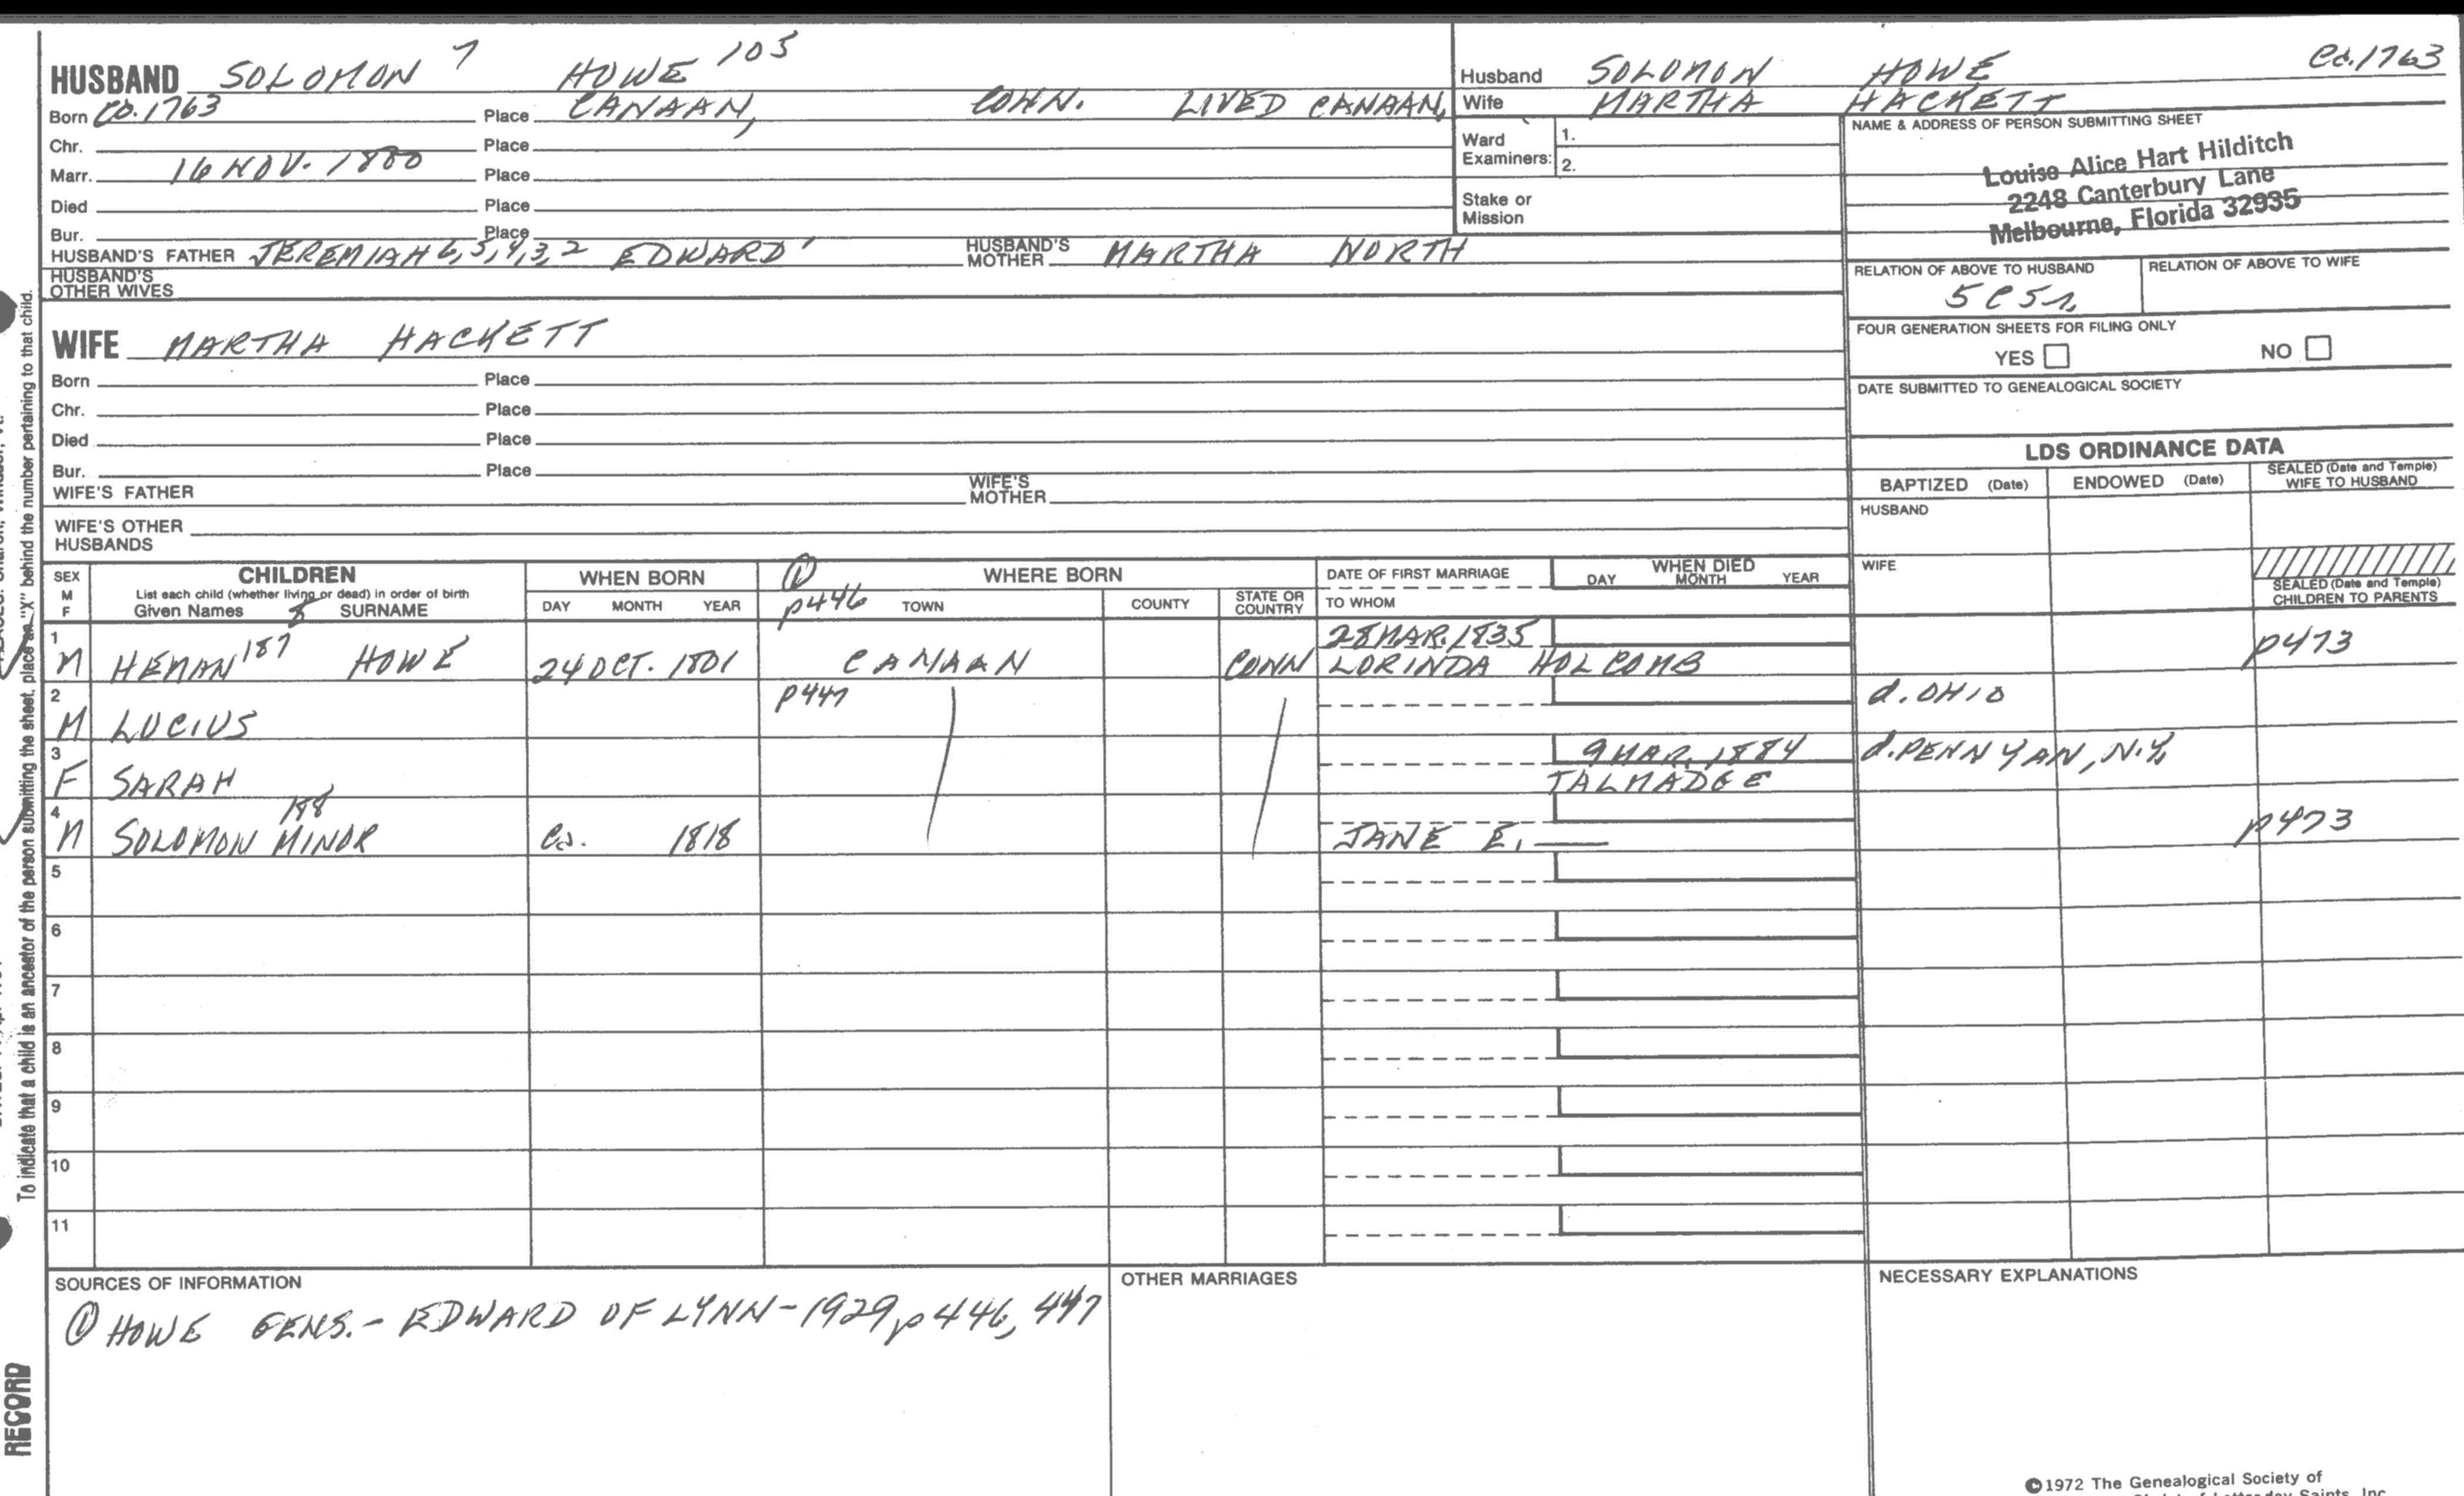 HUSBAND SOLOMON 7 HOWE 105
Born Ca. 1763 Place CANAAN, CONN. LIVED CANAAN,
Chr. Place
Marr. 16 NOV. 1800 Place
Died Place
Bur. Place
HUSBAND'S FATHER JEREMIAH 6,5,4,3,2 EDWARD 1 HUSBAND'S MOTHER MARTHA NORTH
HUSBAND'S OTHER WIVES
Husband SOLOMON HOWE Ca. 1763
Wife MARTHA HACKETT
Ward Examiners: 1.
2.
Stake or Mission
NAME & ADDRESS OF PERSON SUBMITTING SHEET
Louise Alice Hart Hilditch
2248 Canterbury Lane
Melbourne, Florida 32935
RELATION OF ABOVE TO HUSBAND RELATION OF ABOVE TO WIFE
5C5r
FOUR GENERATION SHEETS FOR FILING ONLY
YES NO
DATE SUBMITTED TO GENEALOGICAL SOCIETY
WIFE MARTHA HACKETT
Born Place
Chr. Place
Died Place
Bur. Place
WIFE'S FATHER WIFE'S MOTHER
WIFE'S OTHER HUSBANDS
LDS ORDINANCE DATA
BAPTIZED (Date) ENDOWED (Date) SEALED (Date and Temple) WIFE TO HUSBAND
HUSBAND
WIFE
SEALED (Date and Temple) CHILDREN TO PARENTS
SEX M F
CHILDREN
List each child (whether living or dead) in order of birth
Given Names 8 SURNAME
WHEN BORN
DAY MONTH YEAR
① p446
WHERE BORN
TOWN COUNTY STATE OR COUNTRY
DATE OF FIRST MARRIAGE
TO WHOM
WHEN DIED
DAY MONTH YEAR
1 28 MAR. 1835
M HEMAN 187 HOWE 24 OCT. 1801 CANAAN CONN LORINDA HOLCOMB p473
2 p447 d. OHIO
M LUCIUS
3 9 MAR. 1884 d. PENN YAN, N.Y.
F SARAH TALMADGE
4 188 p473
M SOLOMON MINOR Ca. 1818 JANE E. ——
5
6
7
8
9
10
11
SOURCES OF INFORMATION OTHER MARRIAGES NECESSARY EXPLANATIONS
① HOWE GENS. - EDWARD OF LYNN - 1929, p 446, 447
©1972 The Genealogical Society of
To indicate that a child is an ancestor of the person submitting the sheet, place an "X" behind the number pertaining to that child.
RECORD